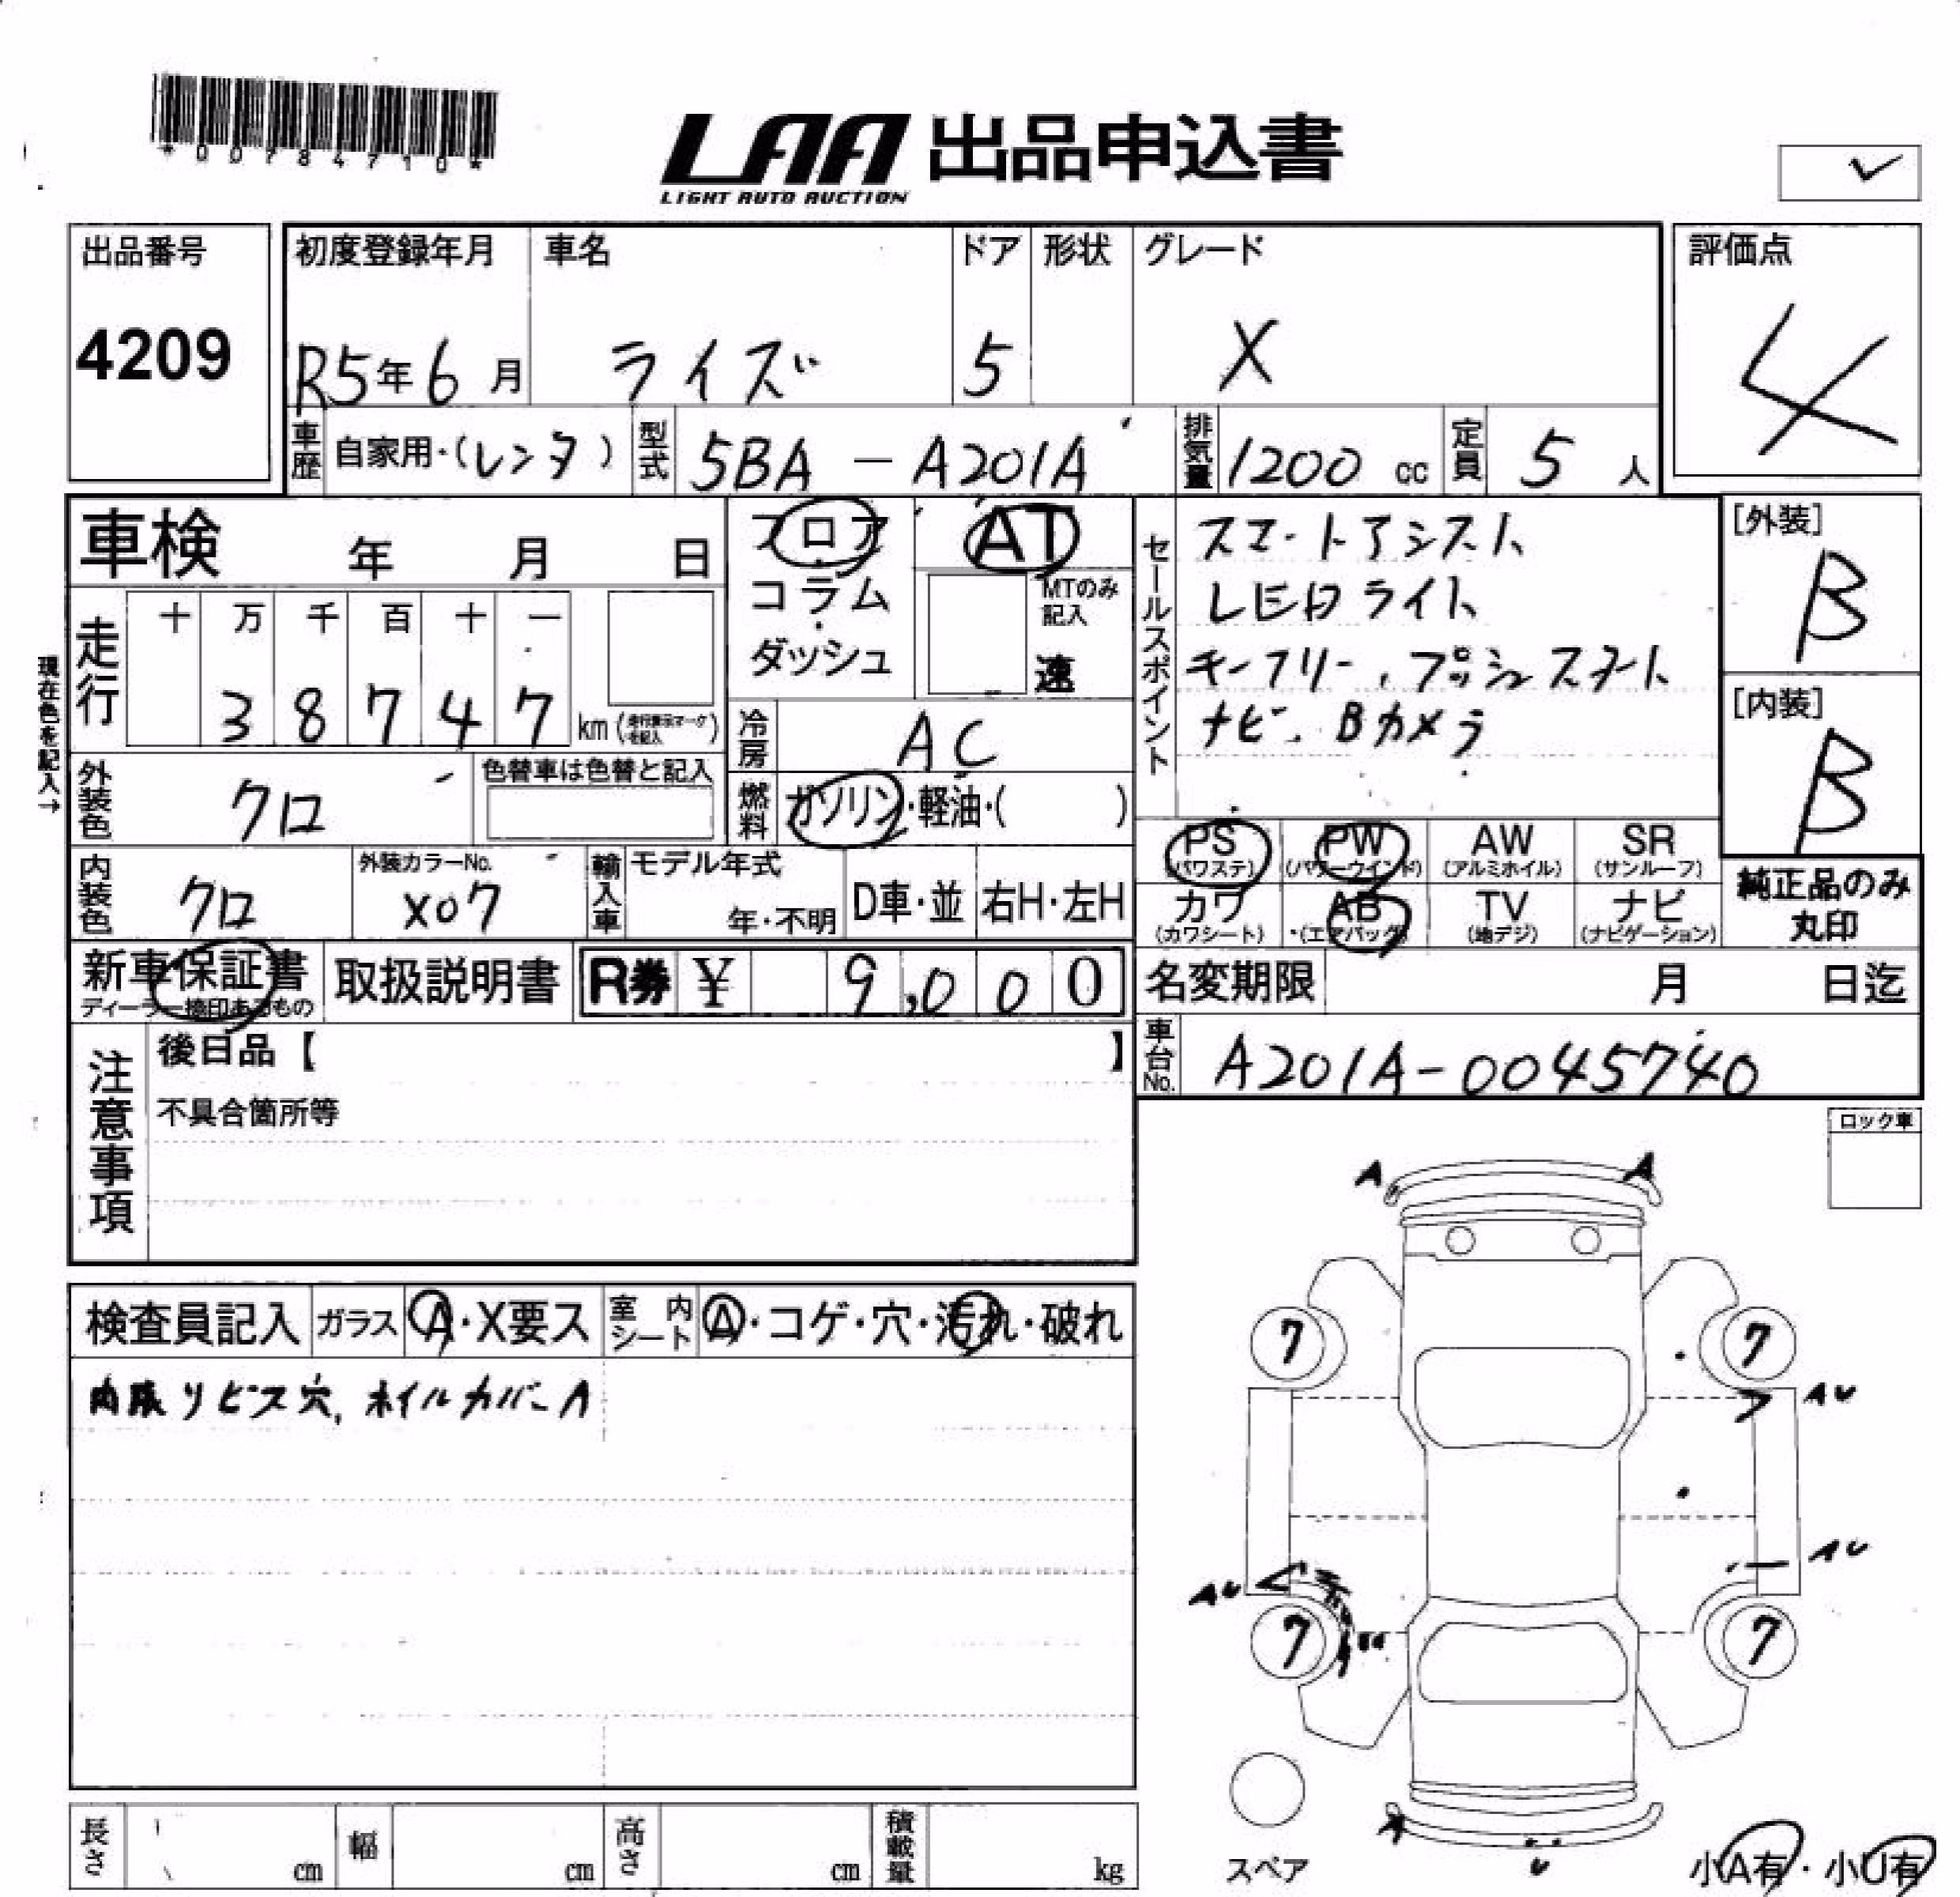 *00784710*
LAA 出品申込書
LIGHT AUTO AUCTION
出品番号
4209
初度登録年月
R5年6月
車名
ライズ
ドア
5
形状
グレード
X
評価点
4
車歴 自家用・(レンタ)
型式 5BA-A201A
排気量 1200 cc
定員 5 人
車検 年 月 日
フロア
コラム
ダッシュ
AT
MTのみ
記入
速
セールスポイント
スマートアシスト
LEDライト
キーフリー、プッシュスタート
ナビ、Bカメラ
[外装]
B
[内装]
B
現在色を記入→
走行
十 万 千 百 十 一
3 8 7 4 7
km(走行表示マークを記入)
冷房 AC
燃料 ガソリン・軽油・( )
外装色 クロ
色替車は色替と記入
内装色 クロ
外装カラーNo.
X07
輸入車
モデル年式
年・不明
D車・並
右H・左H
PS
(パワステ)
PW
(パワーウインド)
AW
(アルミホイル)
SR
(サンルーフ)
カワ
(カワシート)
AB
(エアバッグ)
TV
(地デジ)
ナビ
(ナビゲーション)
純正品のみ
丸印
新車保証書
ディーラー捺印あるもの
取扱説明書
R券 ¥ 9,000
名変期限 月 日迄
車台No. A201A-0045740
注意事項
後日品【 】
不具合箇所等
ロック車
検査員記入
ガラス A・X要ス
室内シート A・コゲ・穴・汚れ・破れ
内張りビス穴、ホイルカバーA
A A
7 7
AU
AU
AU
7 7
U
スペア
小A有・小U有
長さ cm
幅 cm
高さ cm
積載量 kg